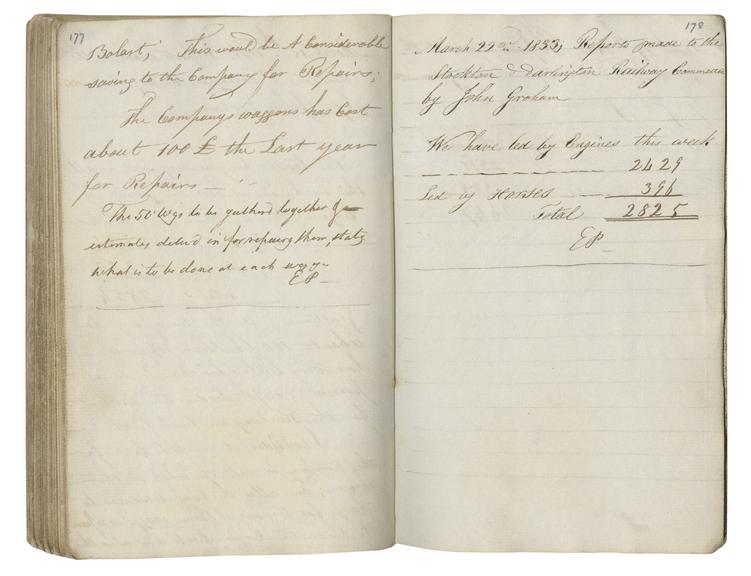 177
Balast; This would be A Considerable
saving to the Company for Repairs;
The Companys waggons has Cost
about 100 £ the Last year
for Repairs —
The 50 Wgs to be gatherd together &
estimates deliv'd in for repairg them, statg
what is to be done at each wagg
EP
178
March 22nd 1833; Reports made to the
Stockton & Darlington Railway Committee
by John Graham
Wee have led by Engines this week
2429
Led by Horses 396
Total 2825
EP